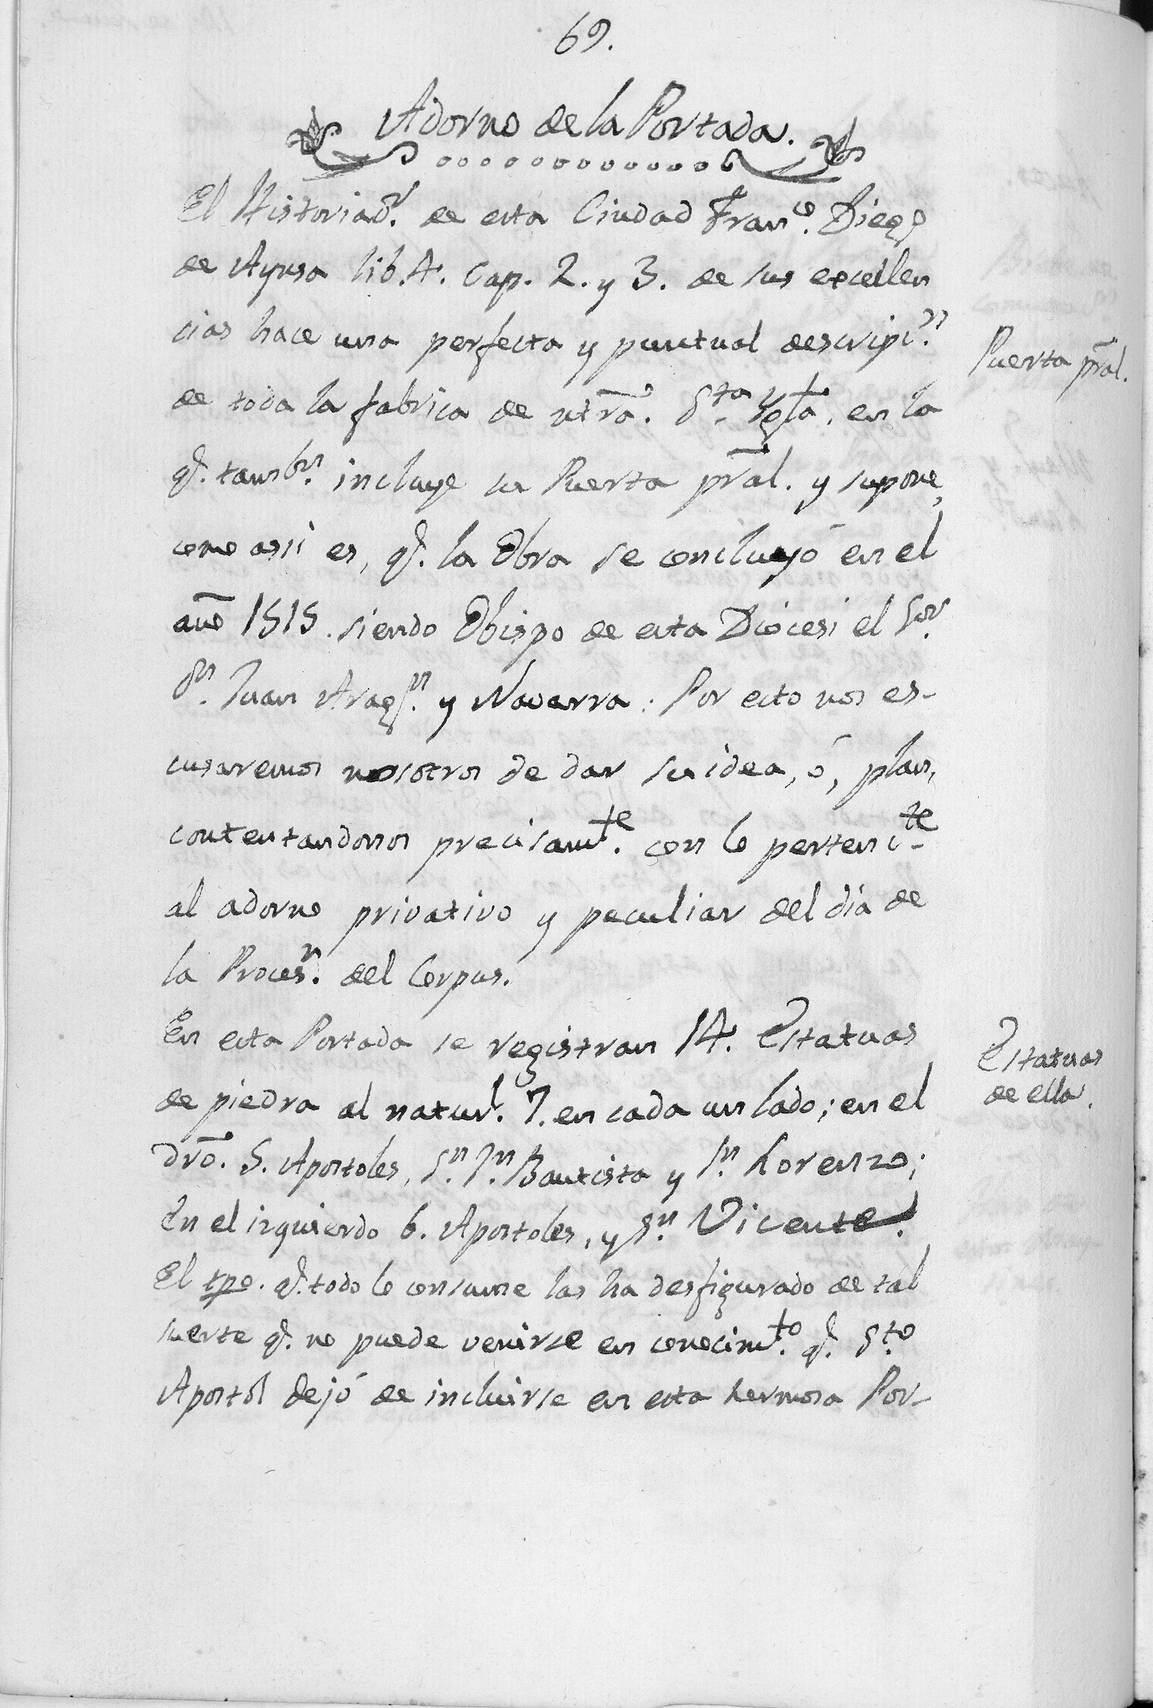 69.
Adorno de la Portada.
El Historiad.r de esta Ciudad Fran.co Diego
de Aynsa lib. 4. Cap. 2. y 3. de sus excellen
cias hace una perfecta y puntual descripc.n
Puerta pral.
de toda la fabrica de ntra. S.ta Ygla. en la
q. tamb.n incluye su Puerta pral. y supone,
como assi es, q. la Obra se concluyó en el
año 1515. siendo Obispo de esta Diocesi el S.or
D.n Juan Arag.n y Navarra. Por esto nos es-
cusaremos nosotros de dar su idea, ó, plan,
contentandonos precisam.te con lo pertenc.te
al adorno privativo y peculiar del dia de
la Proces.n del Corpus.
En esta Portada se registran 14. Estatuas
Estatuas
de ella.
de piedra al natur.l 7. en cada un lado; en el
dro. 5. Apostoles, S.n J.n Bautista y S.n Lorenzo;
En el izquierdo 6. Apostoles, y S.n Vicente.
El tpo. q. todo lo consume las ha desfigurado de tal
suerte q. no puede venirse en conocim.to q. S.to
Apostol dejó de incluirse en esta hermosa Por-